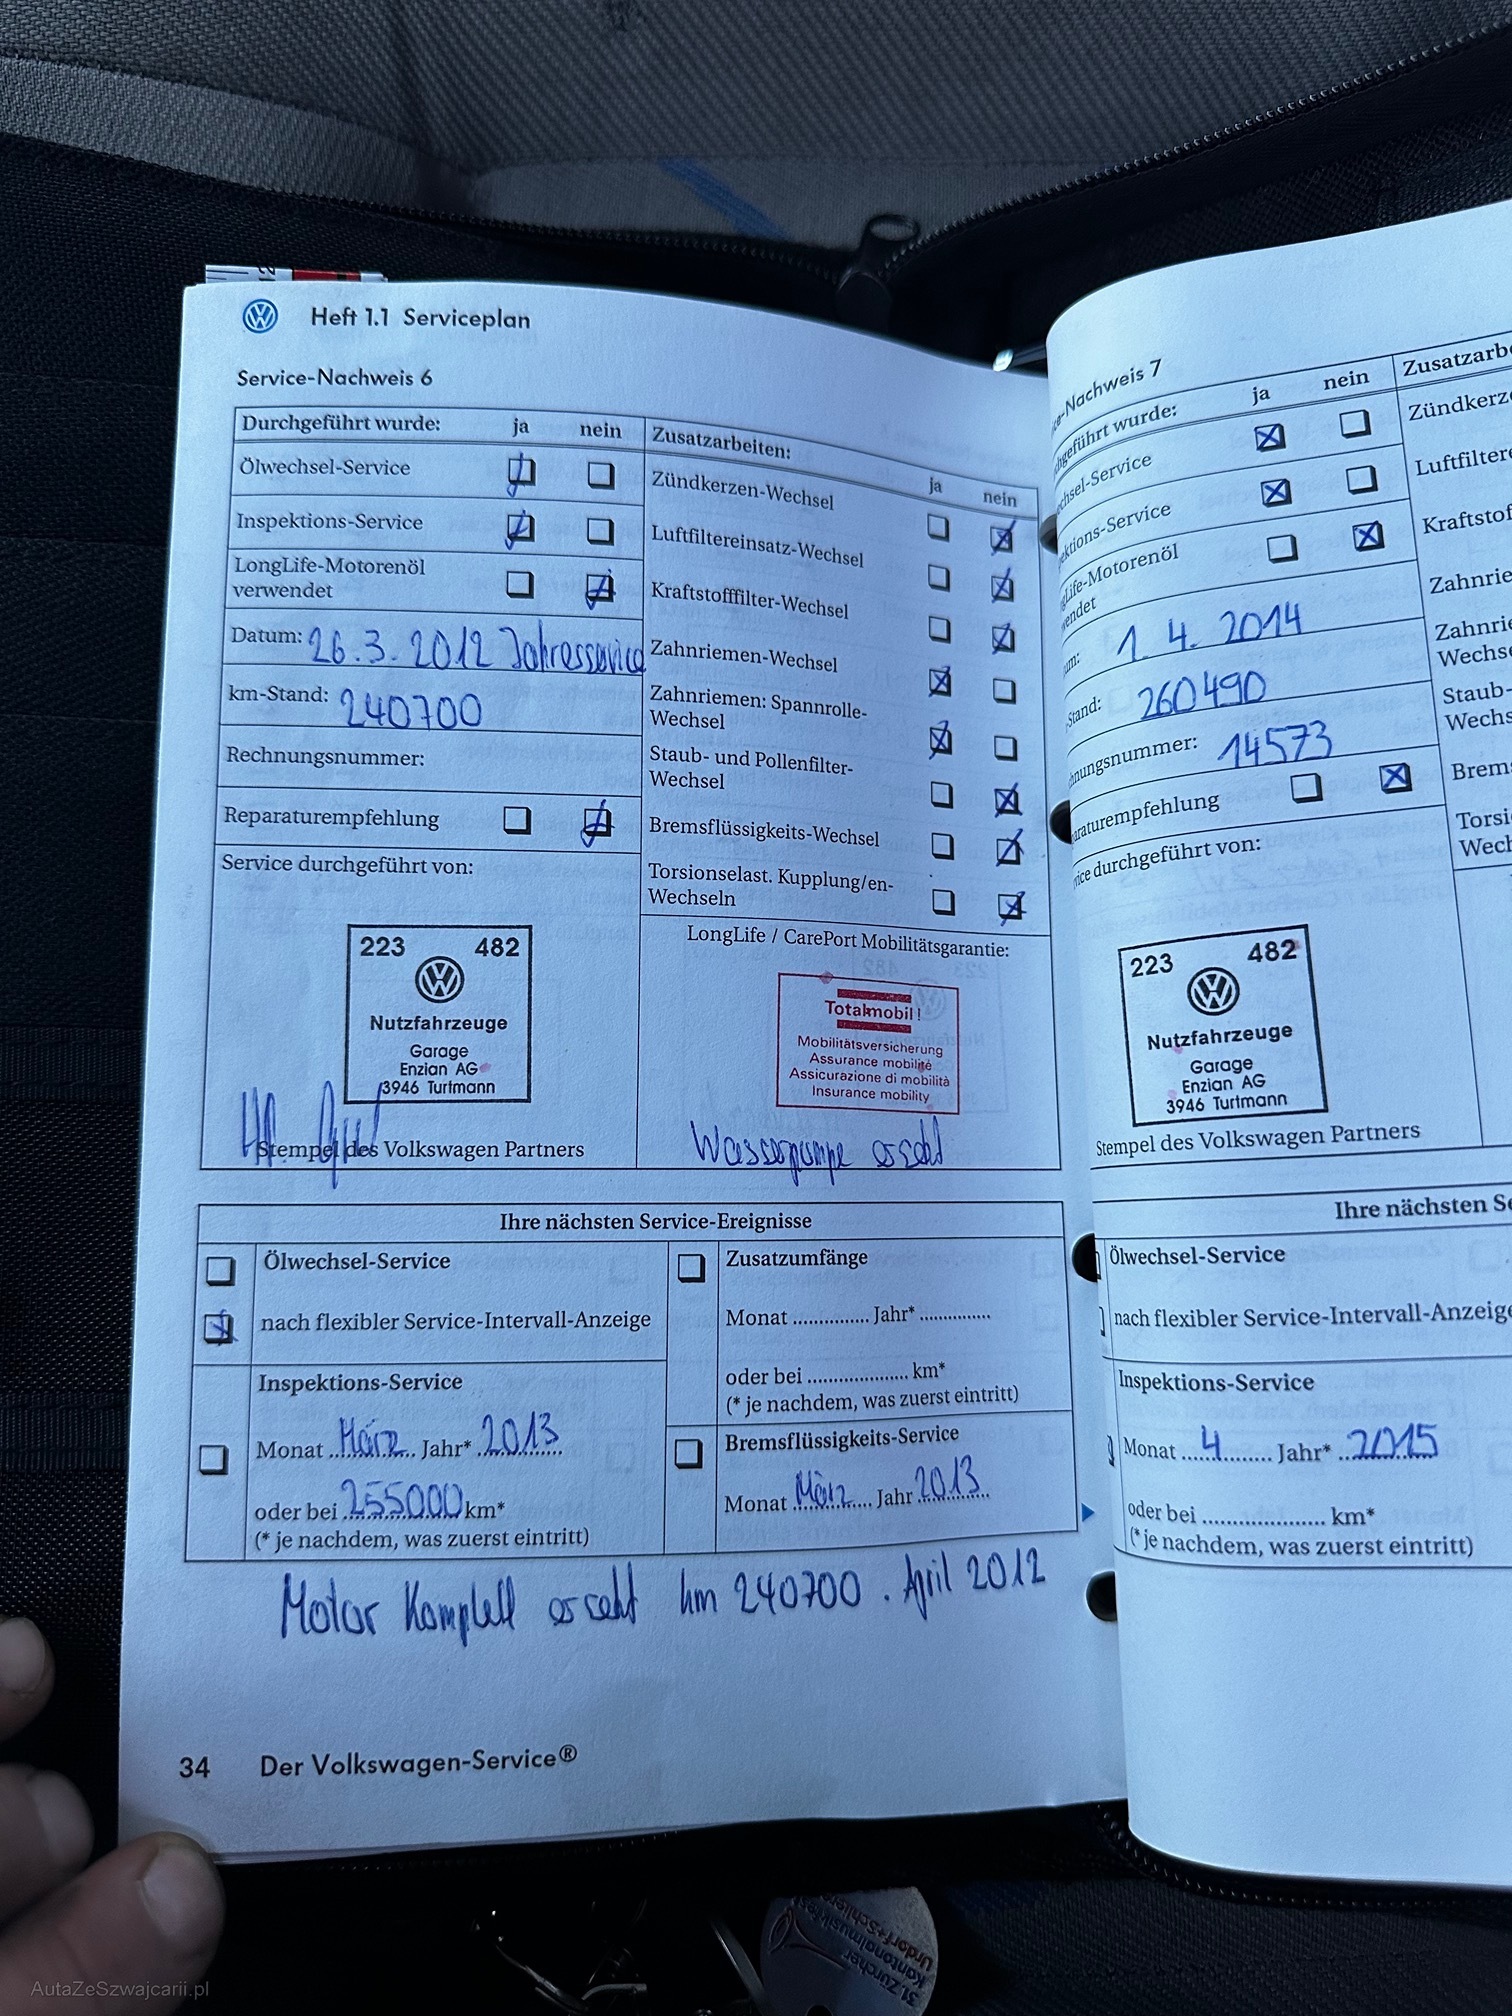 Heft 1.1 Serviceplan
Service-Nachweis 6
Durchgeführt wurde: ja nein
Ölwechsel-Service
Inspektions-Service
LongLife-Motorenöl
verwendet
Datum: 26.3.2012 Jahresservice
km-Stand: 240700
Rechnungsnummer:
Reparaturempfehlung
Service durchgeführt von:
223 482
Nutzfahrzeuge
Garage
Enzian AG
3946 Turtmann
Stempel des Volkswagen Partners
Zusatzarbeiten:
ja nein
Zündkerzen-Wechsel
Luftfiltereinsatz-Wechsel
Kraftstofffilter-Wechsel
Zahnriemen-Wechsel
Zahnriemen: Spannrolle-
Wechsel
Staub- und Pollenfilter-
Wechsel
Bremsflüssigkeits-Wechsel
Torsionselast. Kupplung/en-
Wechseln
LongLife / CarePort Mobilitätsgarantie:
Totalmobil!
Mobilitätsversicherung
Assurance mobilité
Assicurazione di mobilità
Insurance mobility
Wasserpumpe ersetzt
Ihre nächsten Service-Ereignisse
Ölwechsel-Service
nach flexibler Service-Intervall-Anzeige
Inspektions-Service
Monat März Jahr* 2013
oder bei 255000 km*
(* je nachdem, was zuerst eintritt)
Zusatzumfänge
Monat ............... Jahr* ...............
oder bei .................... km*
(* je nachdem, was zuerst eintritt)
Bremsflüssigkeits-Service
Monat März Jahr 2013
Motor Komplett ersetzt km 240700. April 2012
34 Der Volkswagen-Service®
-Nachweis 7
geführt wurde: ja nein
chsel-Service
ktions-Service
gLife-Motorenöl
wendet
um: 1. 4. 2014
-Stand: 260490
hnungsnummer: 14573
araturempfehlung
vice durchgeführt von:
223 482
Nutzfahrzeuge
Garage
Enzian AG
3946 Turtmann
Stempel des Volkswagen Partners
Zusatzarb
Zündkerz
Luftfiltere
Kraftstof
Zahnrie
Zahnrie
Wechse
Staub-
Wechs
Brems
Torsi
Wech
Ihre nächsten Se
Ölwechsel-Service
nach flexibler Service-Intervall-Anzeige
Inspektions-Service
Monat 4 Jahr* 2015
oder bei .................... km*
(* je nachdem, was zuerst eintritt)
31. Zürcher
Kantonalmusikfest
Urdorf+Schlier
AutaZeSzwajcarii.pl